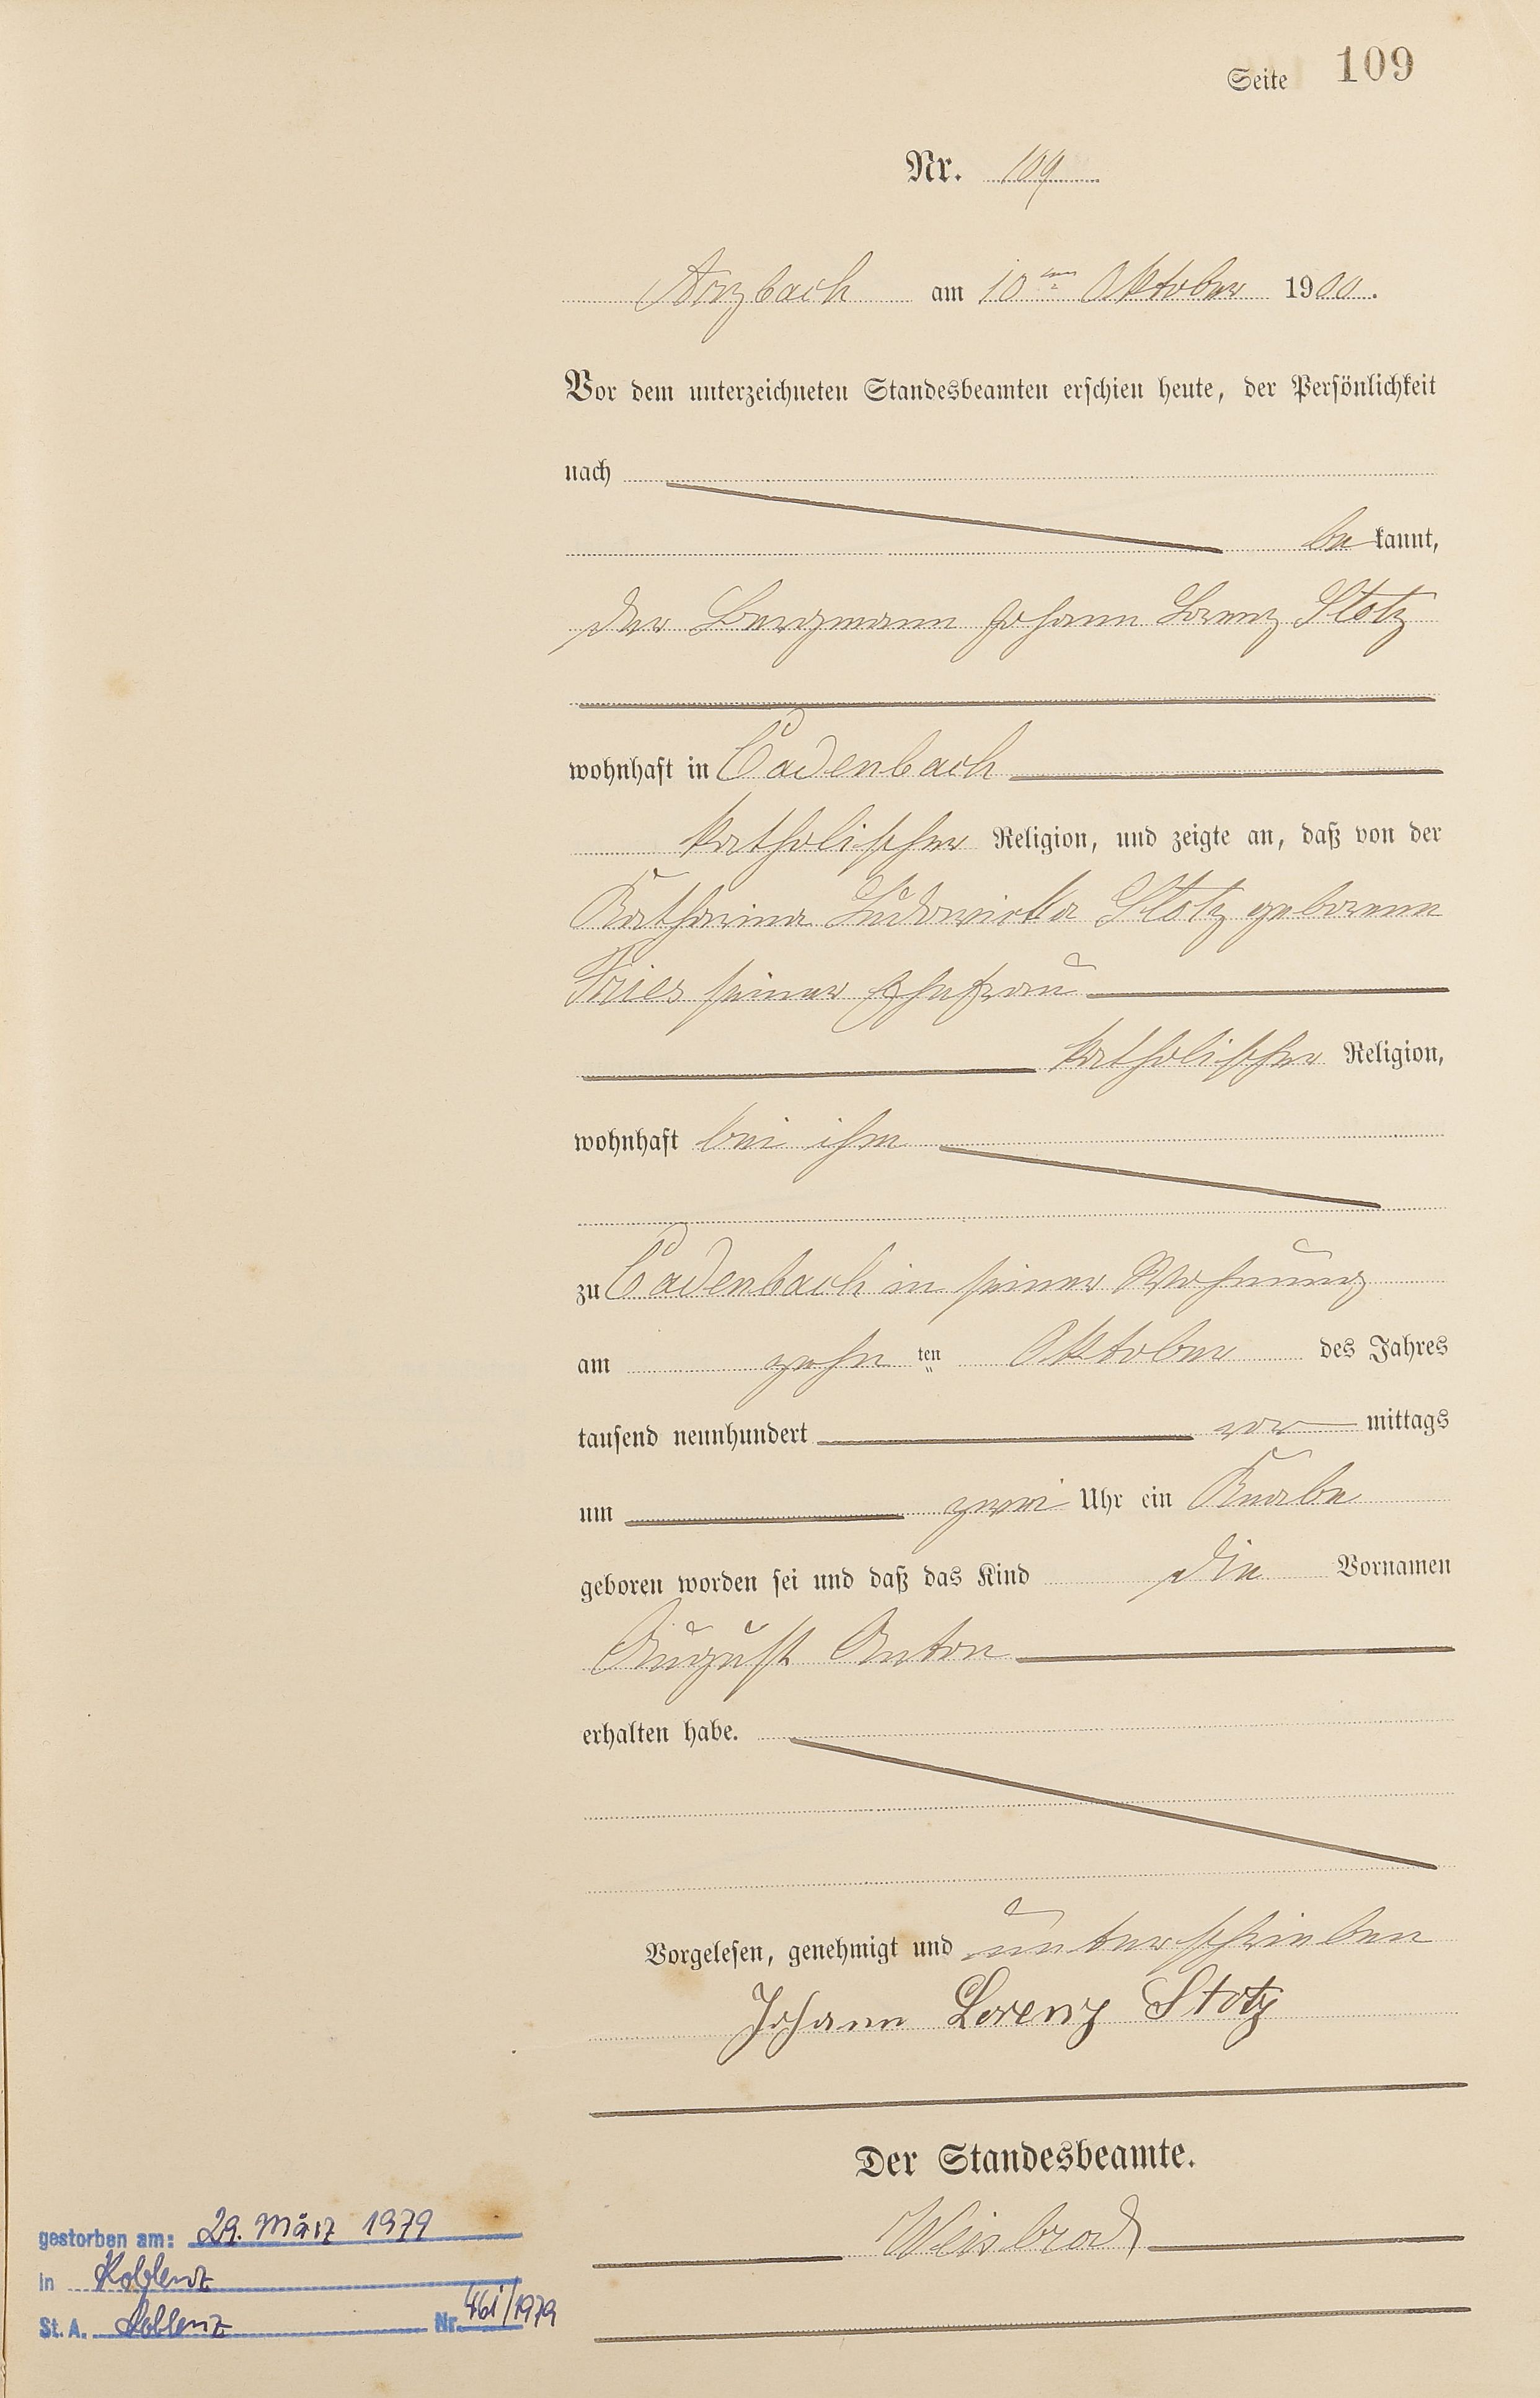 Seite 109
Nr. 109
Arzbach am 10ten Oktober 1900.
Vor dem unterzeichneten Standesbeamten erschien heute, der Persönlichkeit
nach
bekannt,
der Bergmann Johann Lorenz Stotz
wohnhaft in Cadenbach
katholischer Religion, und zeigte an, daß von der
Katharina Ludowicka Stotz geborene
Fries seiner Ehefrau
katholischer Religion,
wohnhaft bei ihm
zu Cadenbach in seiner Wohnung
am zehn ten Oktober des Jahres
tausend neunhundert vor mittags
um zwei Uhr ein Knabe
geboren worden sei und daß das Kind die Vornamen
August Anton
erhalten habe.
Vorgelesen, genehmigt und unterschrieben
Johann Lorenz Stotz
Der Standesbeamte.
Weisbrod
gestorben am: 29. März 1979
in Koblenz
St. A. Koblenz Nr. 461/1979